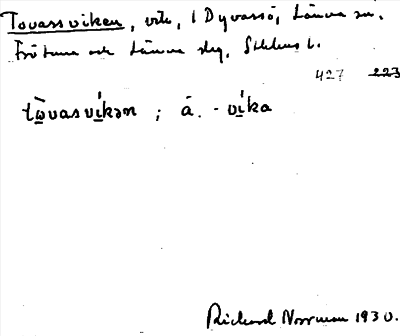 Tovassviken, vik, i Dyvassö, Länna sn.
Frötuna och Länna skg, Sthlms l.
427 223
tòvasvíkən ; ā. - víka
Richard Norrman 1930.